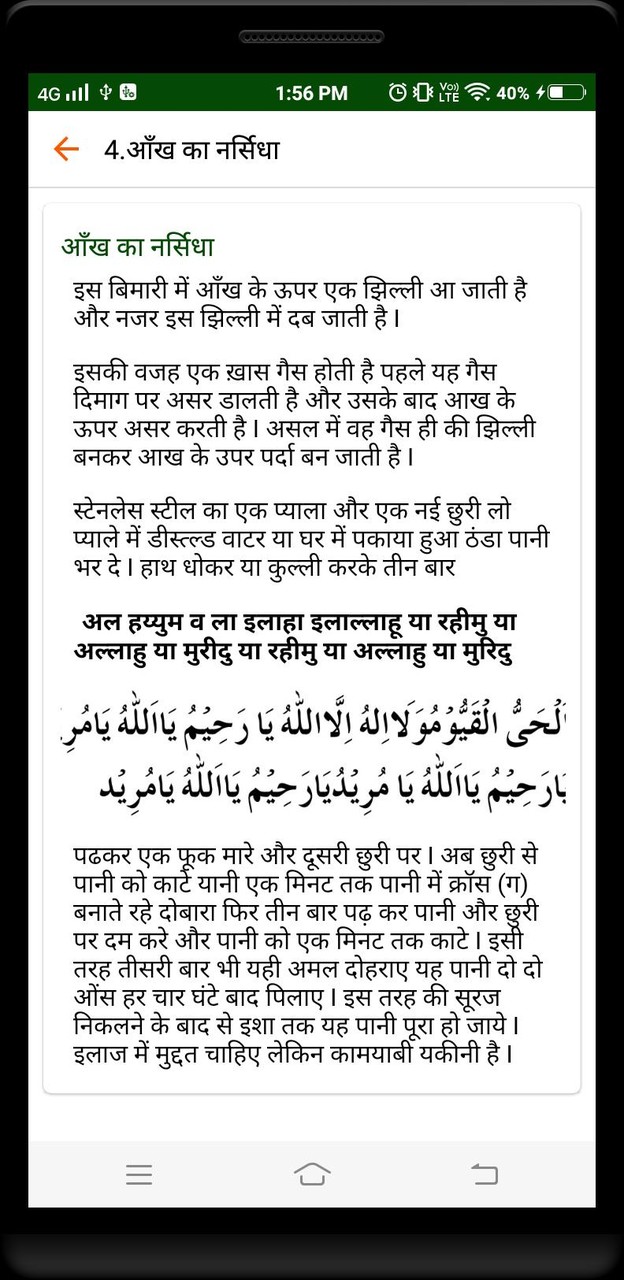 4G 1:56 PM Vo)) LTE 40%
4.आँख का नर्सिधा
आँख का नर्सिधा
इस बिमारी में आँख के ऊपर एक झिल्ली आ जाती है
और नजर इस झिल्ली में दब जाती है।
इसकी वजह एक ख़ास गैस होती है पहले यह गैस
दिमाग पर असर डालती है और उसके बाद आख के
ऊपर असर करती है। असल में वह गैस ही की झिल्ली
बनकर आख के उपर पर्दा बन जाती है।
स्टेनलेस स्टील का एक प्याला और एक नई छुरी लो
प्याले में डीस्त्ल्ड वाटर या घर में पकाया हुआ ठंडा पानी
भर दे। हाथ धोकर या कुल्ली करके तीन बार
अल हय्युम व ला इलाहा इलाल्लाहू या रहीमु या
अल्लाहु या मुरीदु या रहीमु या अल्लाहु या मुरिदु
اَلْحَىُّ الْقَيُّوْمُوَلَااِلٰهُ اِلَّااللّٰهُ يَا رَحِيْمُ يَااَللّٰهُ يَامُرِ
يَارَحِيْمُ يَااَللّٰهُ يَا مُرِيْدُيَارَحِيْمُ يَااَللّٰهُ يَامُرِيْد
पढकर एक फूक मारे और दूसरी छुरी पर। अब छुरी से
पानी को काटे यानी एक मिनट तक पानी में क्रॉस (ग)
बनाते रहे दोबारा फिर तीन बार पढ़ कर पानी और छुरी
पर दम करे और पानी को एक मिनट तक काटे। इसी
तरह तीसरी बार भी यही अमल दोहराए यह पानी दो दो
ओंस हर चार घंटे बाद पिलाए। इस तरह की सूरज
निकलने के बाद से इशा तक यह पानी पूरा हो जाये।
इलाज में मुद्दत चाहिए लेकिन कामयाबी यकीनी है।